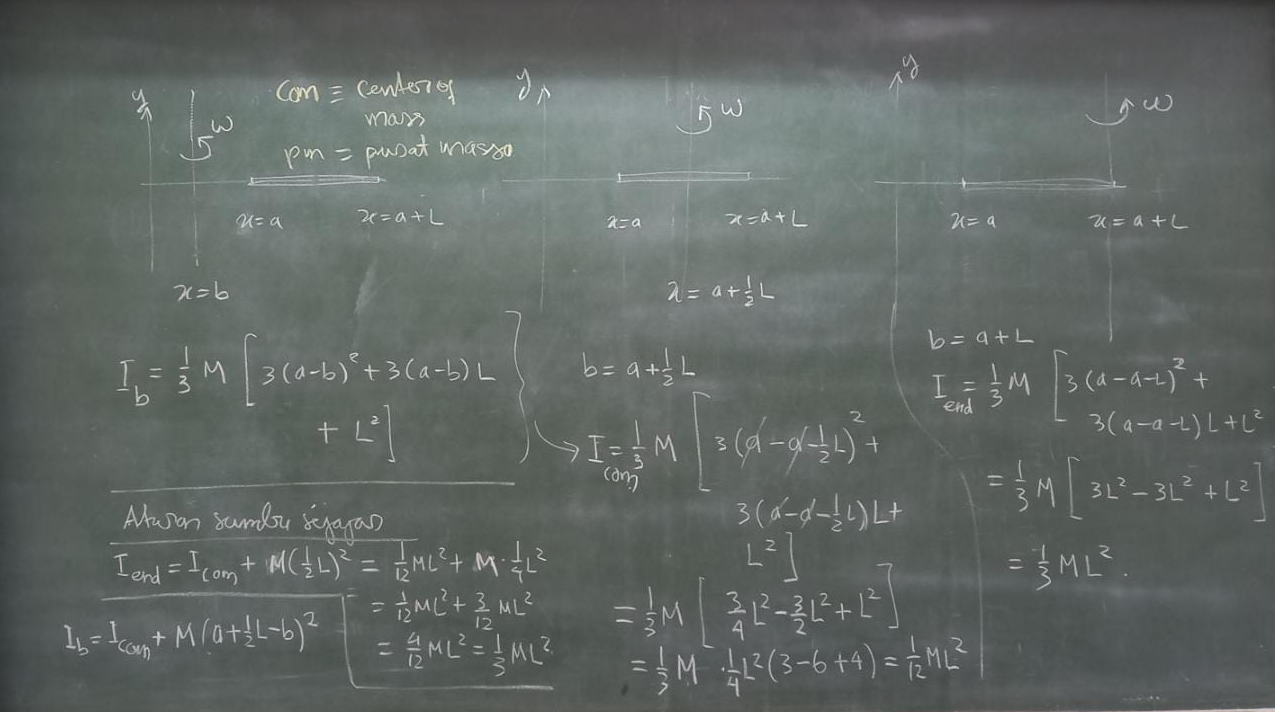 y
ω
com ≡ center of
mass
pm = pusat massa
x=a
x=a+L
x=b
I_b = 1/3 M [3(a-b)² + 3(a-b)L
+ L²]
Aturan sumbu sejajar
I_end = I_com + M(1/2 L)² = 1/12 ML² + M·1/4 L²
= 1/12 ML² + 3/12 ML²
= 4/12 ML² = 1/3 ML²
I_b = I_com + M(a+1/2 L-b)²
y
ω
x=a
x=a+L
x= a+1/2 L
b= a+1/2 L
I_com = 1/3 M [3(a-a-1/2 L)² +
3(a-a-1/2 L)L+
L²]
= 1/3 M [3/4 L² - 3/2 L² + L²]
= 1/3 M · 1/4 L²(3-6+4) = 1/12 ML²
y
ω
x=a
x=a+L
b= a+L
I_end = 1/3 M [3(a-a-L)² +
3(a-a-L)L+L²
= 1/3 M [3L² - 3L² + L²]
= 1/3 ML².